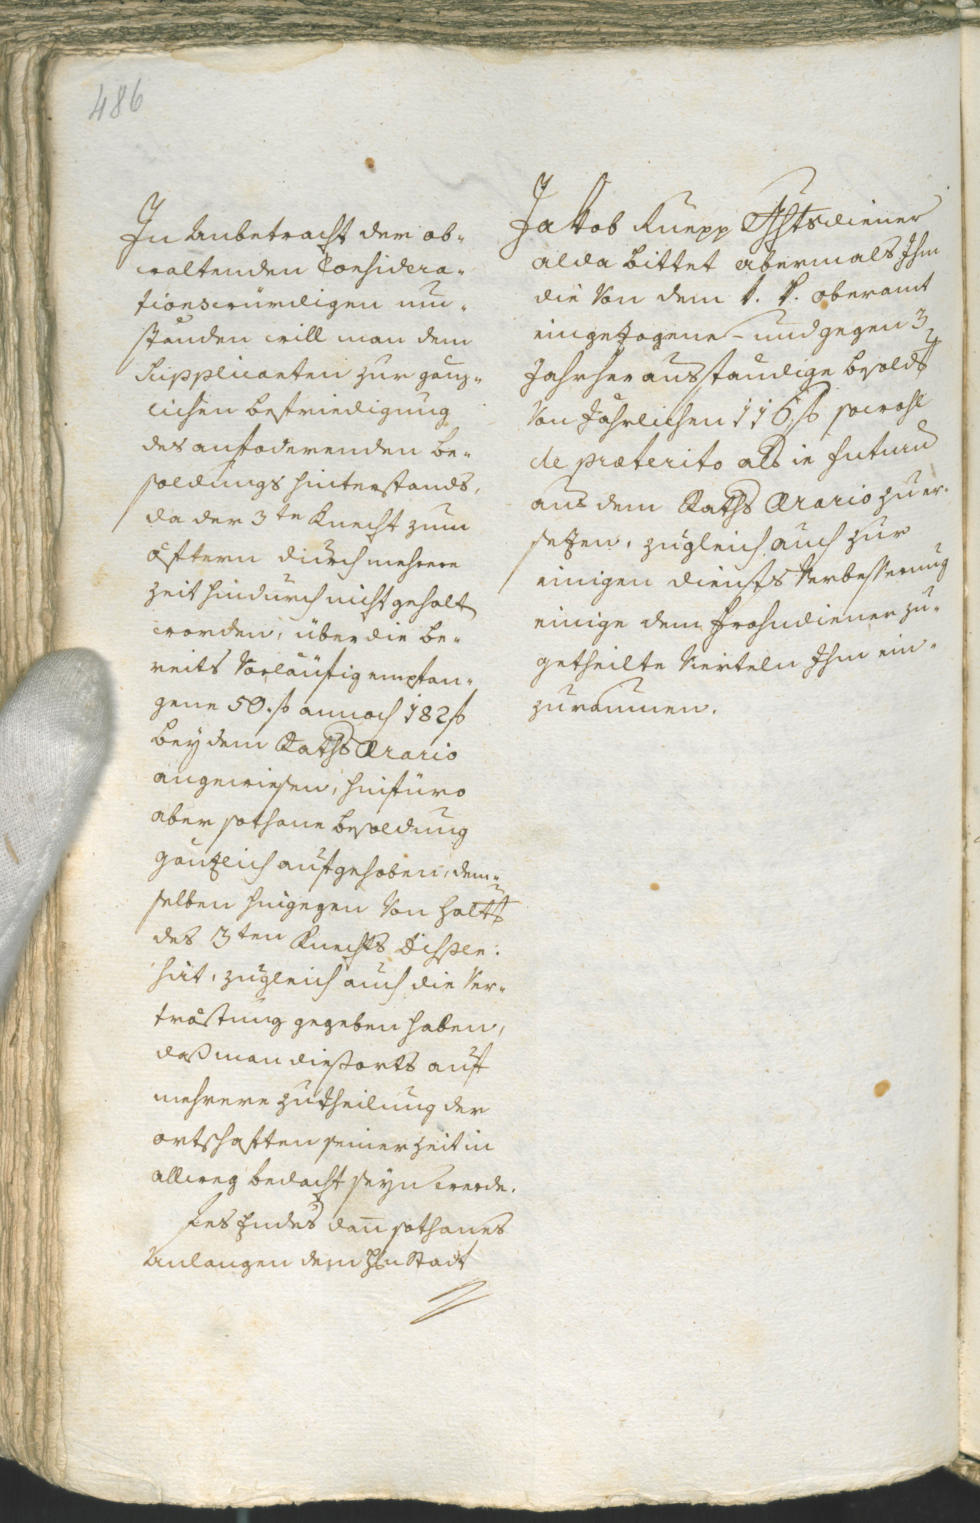 486
In Anbetracht der ob-
waltenden Considera-
tionswürdigen um-
ständen will man dem
Supplicanten zur gänz-
lichen befriedigung
des anfoderenden be-
soldungs hinterstands,
da der 3te Knecht zum
öfttern durch mehrere
zeit hindurch nicht gehalt
worden, über die be-
reits Vorläufig empfan-
gene 50. f annoch 182 f
bey dem Raths Ærario
angewiesen, hinfüro
aber sothane besoldung
gäntzlich aufgehoben, dem-
selben hingegen Von
des 3ten Knechts
hüt, zugleich auch die Ver-
tröstung gegeben haben,
daß man dießorts auf
mehrere zutheilung der
ortschafften seiner zeit in
allweg bedacht seyn werde.
dan sothanes
Anlangen dem Stadt
Jakob Ruepp diener
alda bittet abermals Ihm
die Von dem k. k. oberamt
eingezogene - und gegen 3
Jahr her ausständige besold
Von Jährlichen 116 f sowohl
de præterito als in futurum
aus dem Raths Ærario zu er-
setzen, zugleich auch zur
einigen diensts Verbesserung
einige dem frohndiener zu-
getheilte Vierteln Ihm ein-
zuraumen.